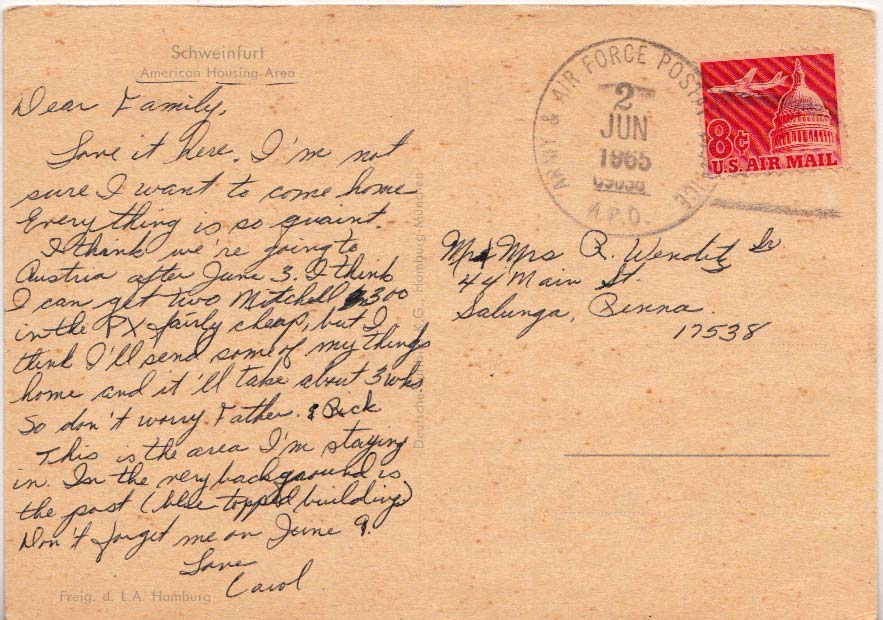 Schweinfurt
American Housing-Area
Dear Family,
Love it here. I'm not
sure I want to come home
Everything is so quaint.
I think we're going to
Austria after June 3. I think
I can get two Mitchell 300
in the PX fairly cheap, but I
think I'll send some of my things
home and it'll take about 3 wks
So don't worry Father. & Rick
This is the area I'm staying
in. In the very background is
the post (blue topped building)
Don't forget me on June 9.
Love
Carol
Freig. d. L.A. Hamburg
K.G., Hamburg-München
ARMY & AIR FORCE POSTAL SERVICE
2
JUN
1965
A.P.O.
8¢
U.S. AIR MAIL
Mr & Mrs R. Wenditz Sr
44 Main St.
Salunga, Penna.
17538